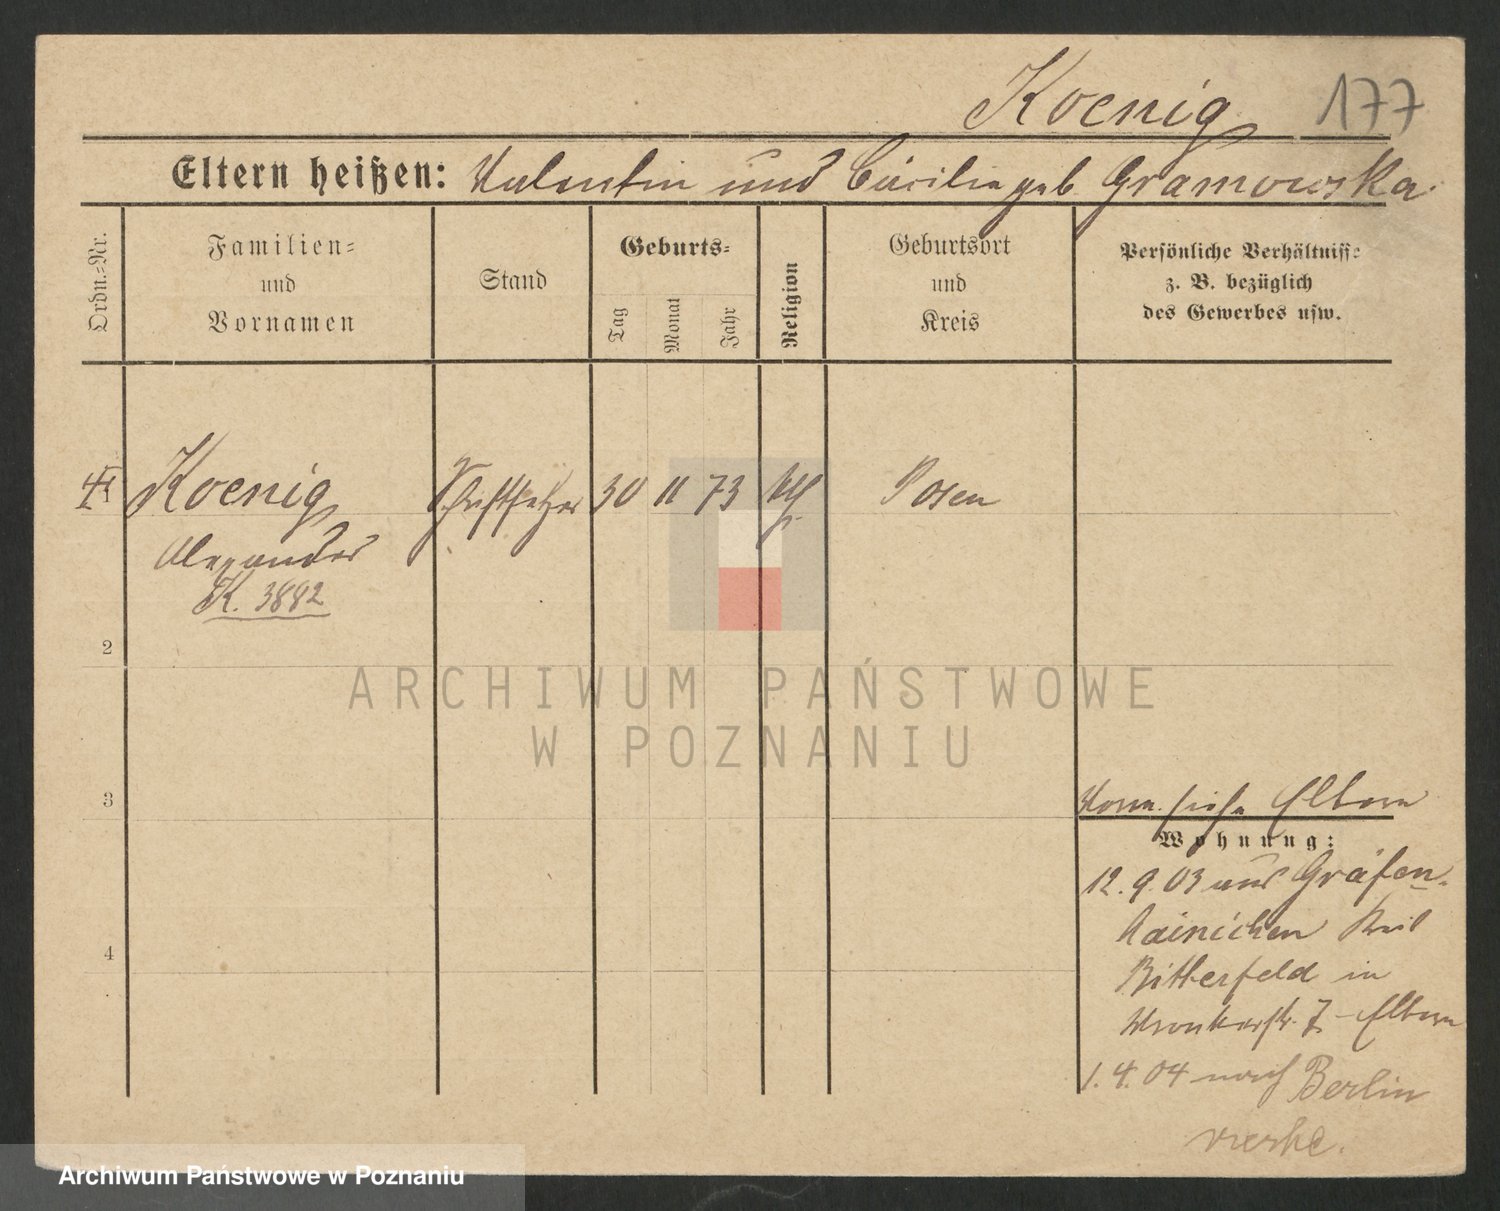 Koenig 177
Eltern heißen: Valentin und Cäcilie geb. Gramowska
Ordn.-Nr.
Familien-
und
Vornamen
Stand
Geburts-
Tag
Monat
Jahr
Religion
Geburtsort
und
Kreis
Persönliche Verhältnisse
z. B. bezüglich
des Gewerbes usw.
Koenig Schriftsetzer 30 11 73 kth Posen
Alexander
K. 3882
2
3
4
siehe Eltern
Wohnung:
12. 9. 03 aus Gräfen-
hainichen Kreis
Bitterfeld in
Wronkerstr. 7 - Eltern
1. 4. 04 nach Berlin
ARCHIWUM PAŃSTWOWE
W POZNANIU
Archiwum Państwowe w Poznaniu